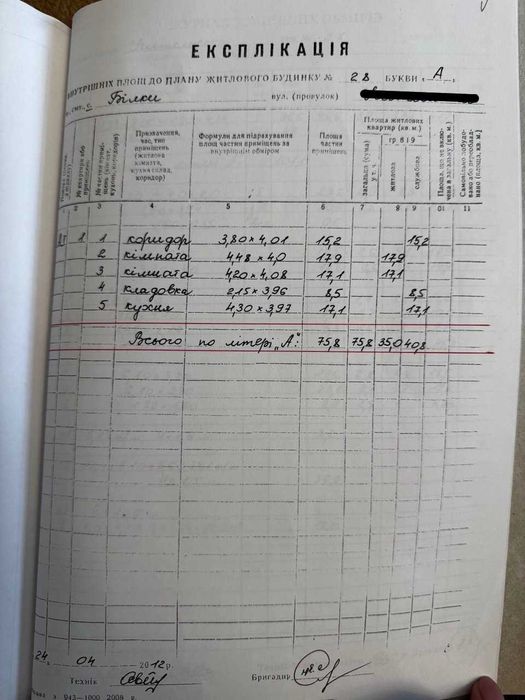 ЕКСПЛІКАЦІЯ
ВНУТРІШНІХ ПЛОЩ ДО ПЛАНУ ЖИТЛОВОГО БУДИНКУ № 28 БУКВИ «А»
смт, с. Білки вул. (провулок)
№ квартири або приміщення
Призначення, час, тип приміщень (житлова кімната, кухня, склад, коридор)
Формули для підрахування площ частин приміщень за внутрішнім обміром
Площа частин приміщень
Площа житлових квартир (кв. м.)
гр. 8 і 9
загальна (сума)
житлова
службова
Площа, що не включена в загальну (кв. м.)
2 3 4 5 6 7 8 9 10 11
1г 1 1 коридор 3,80 × 4,01 15,2 15,2
2 кімната 4,48 × 4,0 17,9 17,9
3 кімната 4,20 × 4,08 17,1 17,1
4 кладовка 2,15 × 3,96 8,5 8,5
5 кухня 4,30 × 3,97 17,1 17,1
Всього по літері „А": 75,8 75,8 35,0 40,8
24 04 2012 р.
Технік Бригадир
943—1000 2009 р.